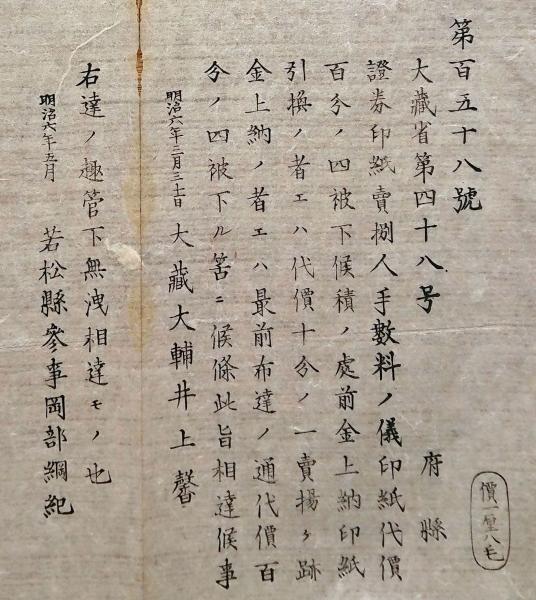 第百五十八號
大藏省第四十八号
府縣
價一厘八毛
證券印紙賣捌人手數料ノ儀印紙代價
百分ノ四被下候積ノ處前金上納印紙
引換ノ者エハ代價十分ノ一賣揚ケ跡
金上納ノ者エハ最前布達ノ通代價百
分ノ四被下ル筈ニ候條此旨相達候事
明治六年三月三十日 大藏大輔井上馨
右達ノ趣管下無洩相達モノ也
明治六年五月 若松縣參事岡部綱紀